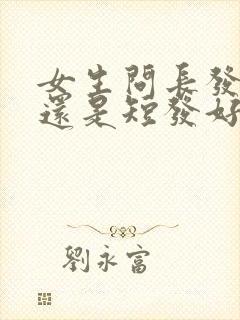 女生問長發
還是短發好
劉永富